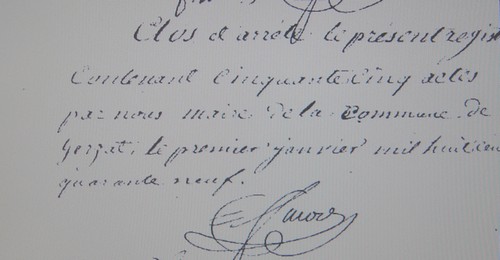 Clos et arrêté le présent regist
Contenant Cinquante Cinq actes
par nous maire de la Commune de
Gerzat, le premier janvier mil huit cen
quarante neuf.